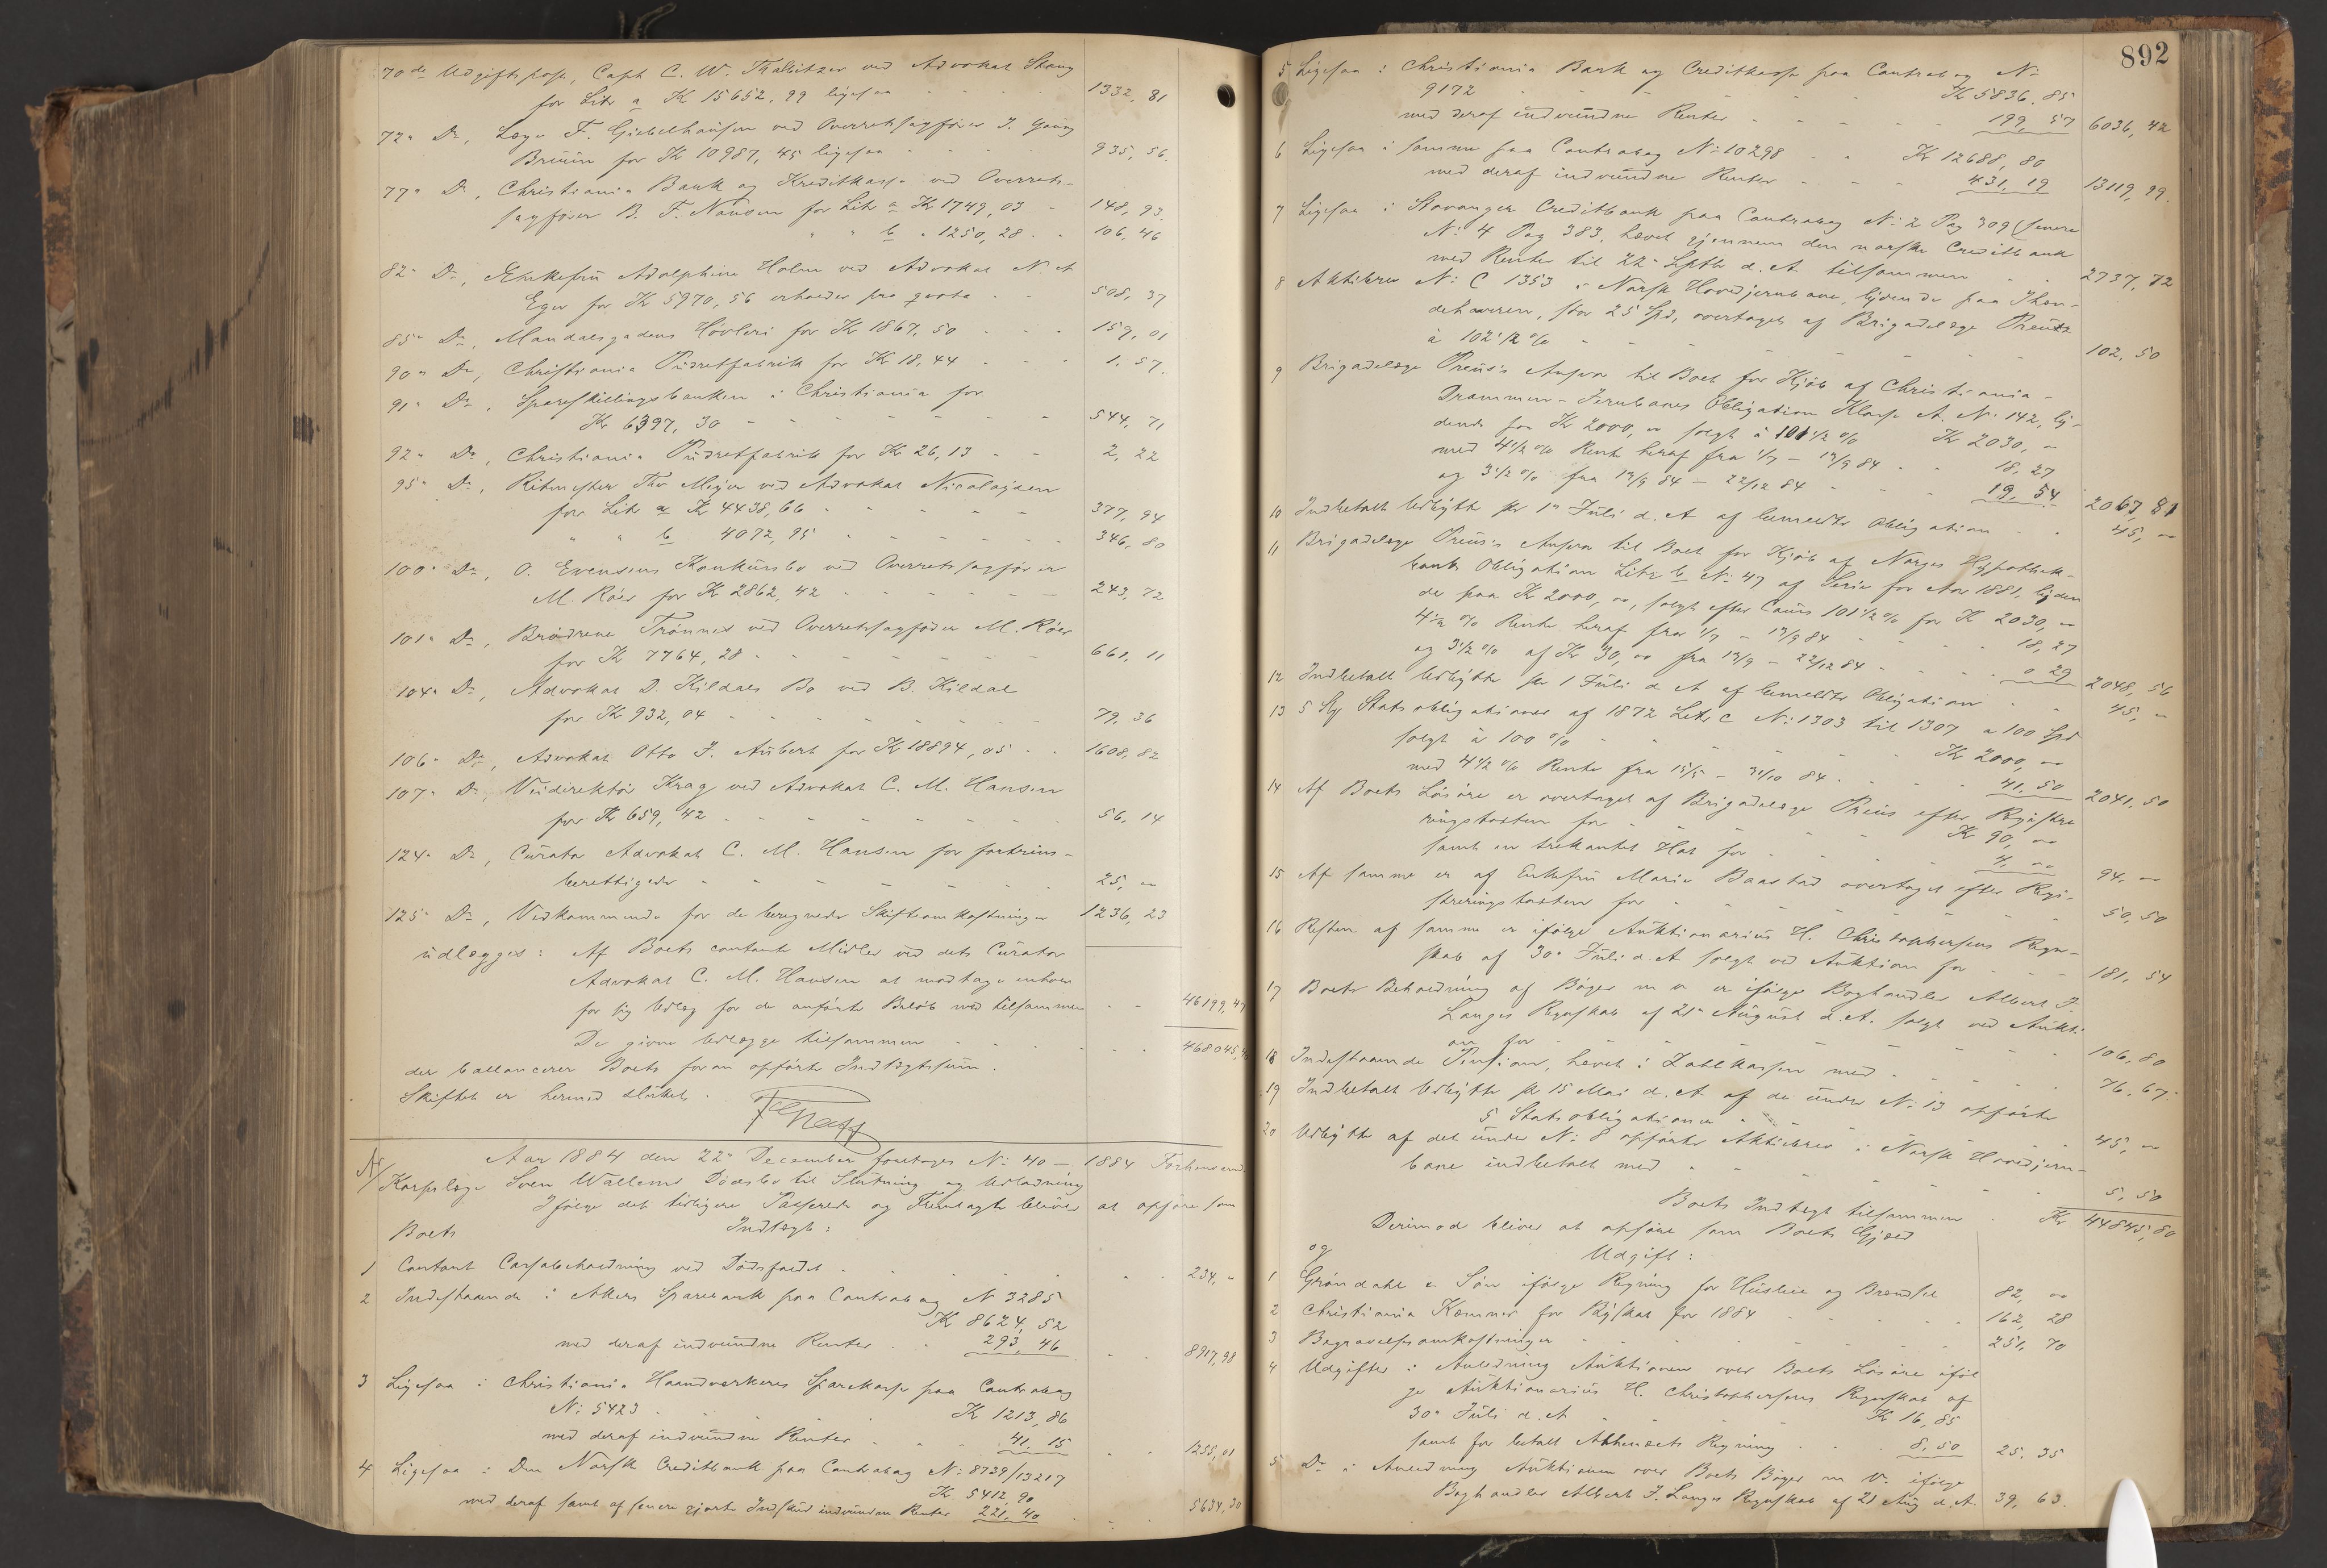 70de Udgiftspost, Capt C. W. Thalbitzer ved Advokat Skaug
for Litr a Kr 15652,99 ligesaa 1332,81
72" Do, Læge F. Giebelhausen ved Overretssagfører J. Young
Bruun for Kr 10987,45 ligesaa 935,56.
77" Do, Christiania Bank og Kreditkasse ved Overrets-
sagfører B. F. Nansen for Litr a Kr 1749,03 148,93.
" " b " 1250,28 106,46
82" Do, Enkefru Adolphine Holm ved Advokat N. A.
Eger for Kr 5970,56 erholder pro qvota 508,37
85" Do, Mandalsgadens Høvleri for Kr 1867,50 159,01
90" Do, Christiania Pudretfabrik for Kr 18,44 1,57.
91" Do, Spareskillingsbanken i Christiania for
Kr 6397,30 544,71
92" Do, Christiania Pudretfabrik for Kr 26,13 2,22
95" Do, Ritmester Thv Meyer ved Advokat Nicolaysen
for Litr a Kr 4438,66 377,94
" " b 4072,95 346,80
100" Do, O. Evensens Konkursbo ved Overretssagfører
M. Röer for Kr 2862,42 243,72
101" Do, Brødrene Trønnes ved Overretssagfører M. Röer
for Kr 7764,28 661,11
104" Do, Advokat D. Kildals Bo ved B. Kildal
for Kr 932,04 79,36
106" Do, Advokat Otto J. Aubert for Kr 18894,05 1608,82
107" Do, Veidirektør Krag ved Advokat C. M. Hansen
for Kr 659,42 56,14
124" Do, Curator Advokat C. M. Hansen for fortrins-
berettiget 25,"
125" Do, Vedkommende for de beregnede Skifteomkostninger 1236,23
udlægges: Af Boets contante Midler ved dets Curator
Advokat C. M. Hansen at modtage enhver
for sig Udlæg for de anførte Beløb med tilsammen 46199,47
De givne Udlægge tilsammen 468045,
der ballancerer Boets foran opførte Indtægtssum.
Skiftet er hermed sluttet.
Aar 1884 den 22" December foretoges No 40 – 1884 Forhenværende
Korpslæge Sven Wallems Dødsbo til Slutning og Udlodning
Ifølge det tidligere Passerede og Fremlagte bliver at opføre som
Boets Indtægt:
1 Contant Cassabeholdning ved Dødsfaldet 234,"
2 Indestaaende i Akers Sparebank paa Contrabog No 3285
Kr 8624,52
med deraf indvundne Renter 293,46 8917,98
3 Ligesaa i Christiania Haandværkeres Sparekasse paa Contrabog
No 5423 Kr 1213,86
med deraf indvundne Renter 41,15 1255,01
4 Ligesaa i Den Norske Creditbank paa Contrabog No 8739/13217
Kr 5412,90
med deraf samt af senere gjorte Indskud indvundne Renter 221,40 5634,30
892
5 Ligesaa i Christiania Bank og Creditkasse paa Contrabog No
9172 Kr 5836,85
med deraf indvundne Renter 199,57 6036,42
6 Ligesaa i samme paa Contrabog No 10298 Kr 12688,80
med deraf indvundne Renter 431,19 13119,99.
7 Ligesaa i Stavanger Creditbank paa Contrabog No 2 Pag 309 (senere
No 4 Pag 383, hævet gjennem den norske Creditbank
med Renter til 22" Septbr d. A. tilsammen 2737,72
8 Aktiebrev No C 1353 i Norsk Hovedjernbane, lydende paa Ihæn-
dehaveren, stor 25 Spd, overtaget af Brigadelæge Preus
à 102 1/2 % 102,50
9 Brigadelæge Preus's Ansvar til Boet for Kjøb af Christiania-
Drammen-Jernbanes Obligation Klasse A. No 142, ly-
dende paa Kr 2000,– solgt à 101 1/2 % Kr 2030,"
med 4 1/2 % Rente heraf fra 1/7 – 12/9 84 18,27
og 3 1/2 % fra 12/9 84 – 22/12 84 19,54 2067,81
10 Indbetalt Udbytte pr 1" Juli d. A. af bemeldte Obligation 45,"
11 Brigadelæge Preus's Ansvar til Boet for Kjøb af Norges Hypothek-
banks Obligation Litr b No 47 af Serie for Aar 1881, lyden
de paa Kr 2000,oo, solgt efter Cours 101 1/2 % for Kr 2030,"
4 1/2 % Rente heraf fra 1/7 – 12/9 84 18,27
og 3 1/2 % af Kr 30,oo fra 12/9 – 22/12 84 0 29 2048,56
12 Indbetalt Udbytte pr 1 Juli d. A. af bemeldte Obligation 45,"
13 5 Stk Statsobligationer af 1872 Litr C No 1303 til 1307 a 100 Spd
solgt à 100 % Kr 2000,"
med 4 1/2 % Rente fra 15/5 – 31/10 84 41,50 2041,50
14 Af Boets Løsøre er overtaget af Brigadelæge Preus efter Registre
ringstaxten for Kr 90,"
samt en trekantet Hat for 4,oo 94,"
15 Af samme er af Enkefru Marie Baastad overtaget efter Regi-
streringstaxten for 50,50
16 Resten af samme er ifølge Auktionarius H. Christophersens Regn-
skab af 30" Juli d. A. solgt ved Auktion for 181,54
17 Boets Beholdning af Bøger m v er ifølge Boghandler Albert J.
Langes Regnskab af 21" August d. A. solgt ved Aukti-
on for 106,80
18 Indestaaende Pension, hævet i Zahlkassen med 76,67.
19 Indbetalt Udbytte pr 15 Mai d. A. af de under No 13 opførte
5 Statsobligationer 45,"
20 Udbytte af det under No 8 opførte Aktiebrev i Norsk Hovedjern-
bane indbetalt med 5,50
Boets Indtægt tilsammen Kr 44845,80
Derimod bliver at opføre som Boets Gjæld
og Udgift:
1 Grøndahl & Søn ifølge Regning for Husleie og Brændsel 82,oo
2 Christiania Kæmner for Byskat for 1884 162,28
3 Begravelsesomkostninger 251,70
4 Udgifter i Anledning Auktionen over Boets Løsøre iføl
ge Auktionarius H. Christophersens Regnskab af
30" Juli d. A. Kr 16,85
samt for betalt Regning 8,50 25,35
5 Do i Anledning Auktionen over Boets Bøger m. V. ifølge
Boghandler Albert J. Langes Regnskab af 21 Aug d. A. 39,63.